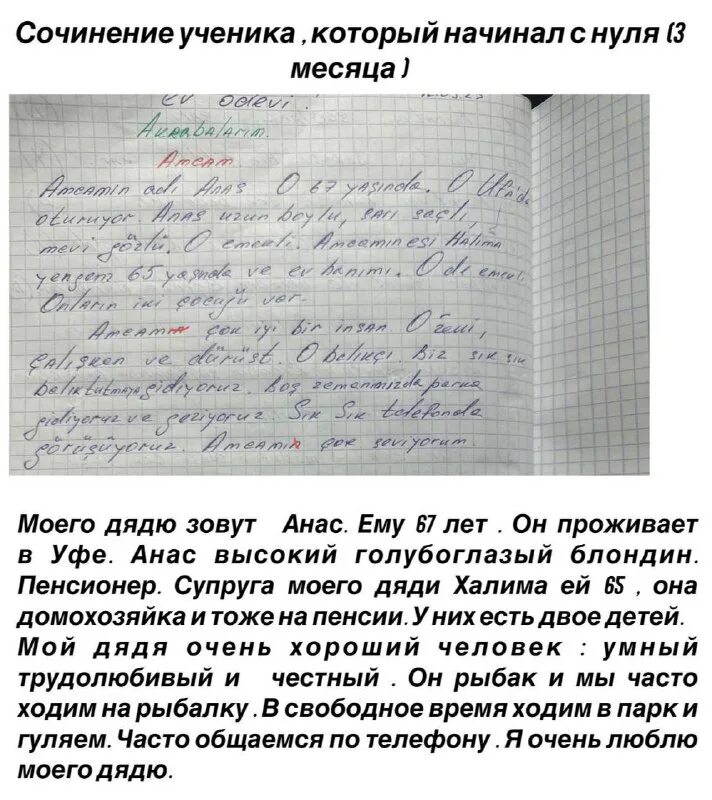 Сочинение ученика ,который начинал с нуля (3
месяца )
ev ödevi.
Akrabalarım.
Amcam.
Amcamın adı Anas O 67 yaşında. O Ufa'da
oturuyor. Anas uzun boylu, sarı saçlı,
mavi gözlü. O emekli. Amcamın eşi Halima
yengem 65 yaşında ve ev hanımı. O de emekli.
Onların iki çocuğu var.
Amcam çok iyi bir insan O zeki,
çalışken ve dürüst. O balıkçı. Biz sık sık
balıktutmaya gidiyoruz. Boş zemanımızda parka
gidiyoruz ve geziyoruz. Sık Sık telefonda
görüşüyoruz. Amcamı çok seviyorum.
Моего дядю зовут Анас. Ему 67 лет . Он проживает
в Уфе. Анас высокий голубоглазый блондин.
Пенсионер. Супруга моего дяди Халима ей 65 , она
домохозяйка и тоже на пенсии. У них есть двое детей.
Мой дядя очень хороший человек : умный
трудолюбивый и честный . Он рыбак и мы часто
ходим на рыбалку . В свободное время ходим в парк и
гуляем. Часто общаемся по телефону . Я очень люблю
моего дядю.